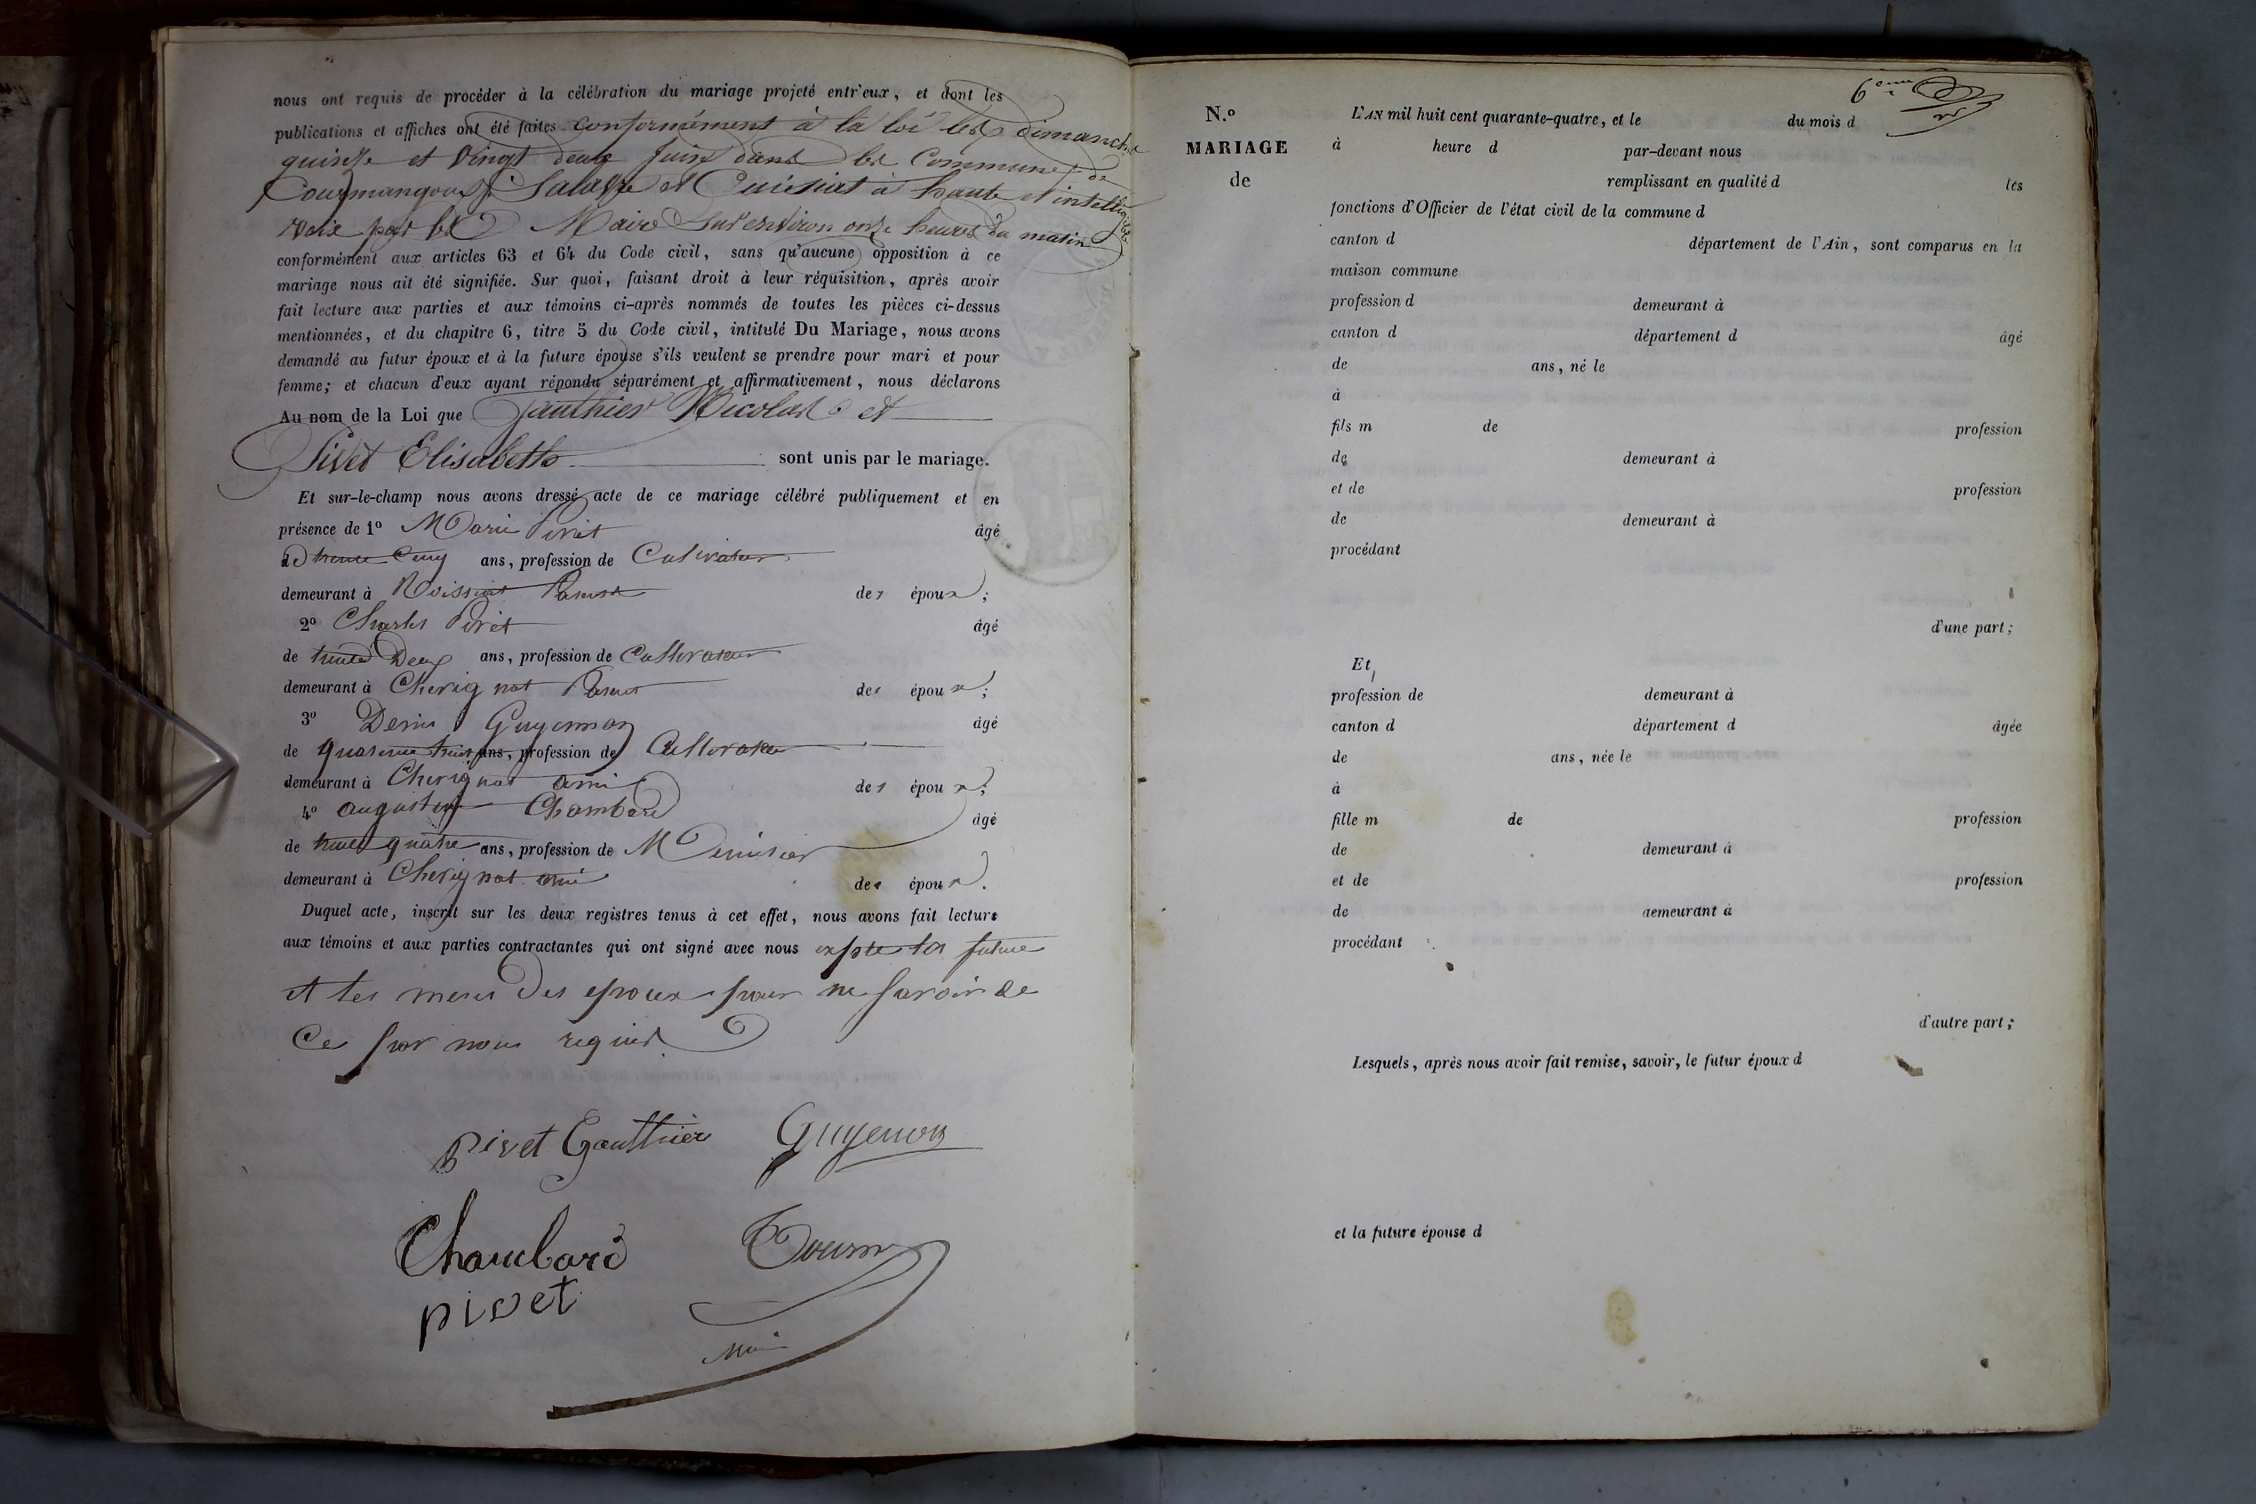 nous ont requis de procéder à la célébration du mariage projeté entr'eux, et dont les
publications et affiches ont été faites conformément à la loi les dimanche
quinze et vingt deux juin dans les Communes de
Courmangoux, Salavre et Cuisiat à haute et intelligible
voix par les Maires sur environ onze heures du matin
conformément aux articles 63 et 64 du Code civil, sans qu'aucune opposition à ce
mariage nous ait été signifiée. Sur quoi, faisant droit à leur réquisition, après avoir
fait lecture aux parties et aux témoins ci-après nommés de toutes les pièces ci-dessus
mentionnées, et du chapitre 6, titre 5 du Code civil, intitulé Du Mariage, nous avons
demandé au futur époux et à la future épouse s'ils veulent se prendre pour mari et pour
femme; et chacun d'eux ayant répondu séparément et affirmativement, nous déclarons
Au nom de la Loi que Gauthier Nicolas et
Pivet Elisabeth sont unis par le mariage.
Et sur-le-champ nous avons dressé acte de ce mariage célébré publiquement et en
présence de 1º Marie Pivet âgé
de trente cinq ans, profession de Cultivateur
demeurant à Roissiat Parent des époux;
2º Charles Pivet âgé
de trente Deux ans, profession de Cultivateur
demeurant à Cherignat Parent des époux;
3º Denis Guyennon âgé
de quarante trois ans, profession de Cultivateur
demeurant à Cherignat ami des époux;
4º augustin Chambard âgé
de trente quatre ans, profession de Menuisier
demeurant à Cherignat ami des époux.
Duquel acte, inscrit sur les deux registres tenus à cet effet, nous avons fait lecture
aux témoins et aux parties contractantes qui ont signé avec nous expte la future
et les meres des epoux pour ne savoir de
ce par nous requis
pivet Gauthier Guyenon
Chambard
pivet
6eme
N.º
MARIAGE
de
L'AN mil huit cent quarante-quatre, et le du mois d
à heure d par-devant nous
remplissant en qualité d les
fonctions d'Officier de l'état civil de la commune d
canton d département de l'Ain, sont comparus en la
maison commune
profession d demeurant à
canton d département d âgé
de ans, né le
à
fils m de profession
de demeurant à
et de profession
de demeurant à
procédant
d'une part;
Et
profession de demeurant à
canton d département d âgée
de ans, née le
à
fille m de profession
de demeurant à
et de profession
de demeurant à
procédant
d'autre part;
Lesquels, après nous avoir fait remise, savoir, le futur époux d
et la future épouse d